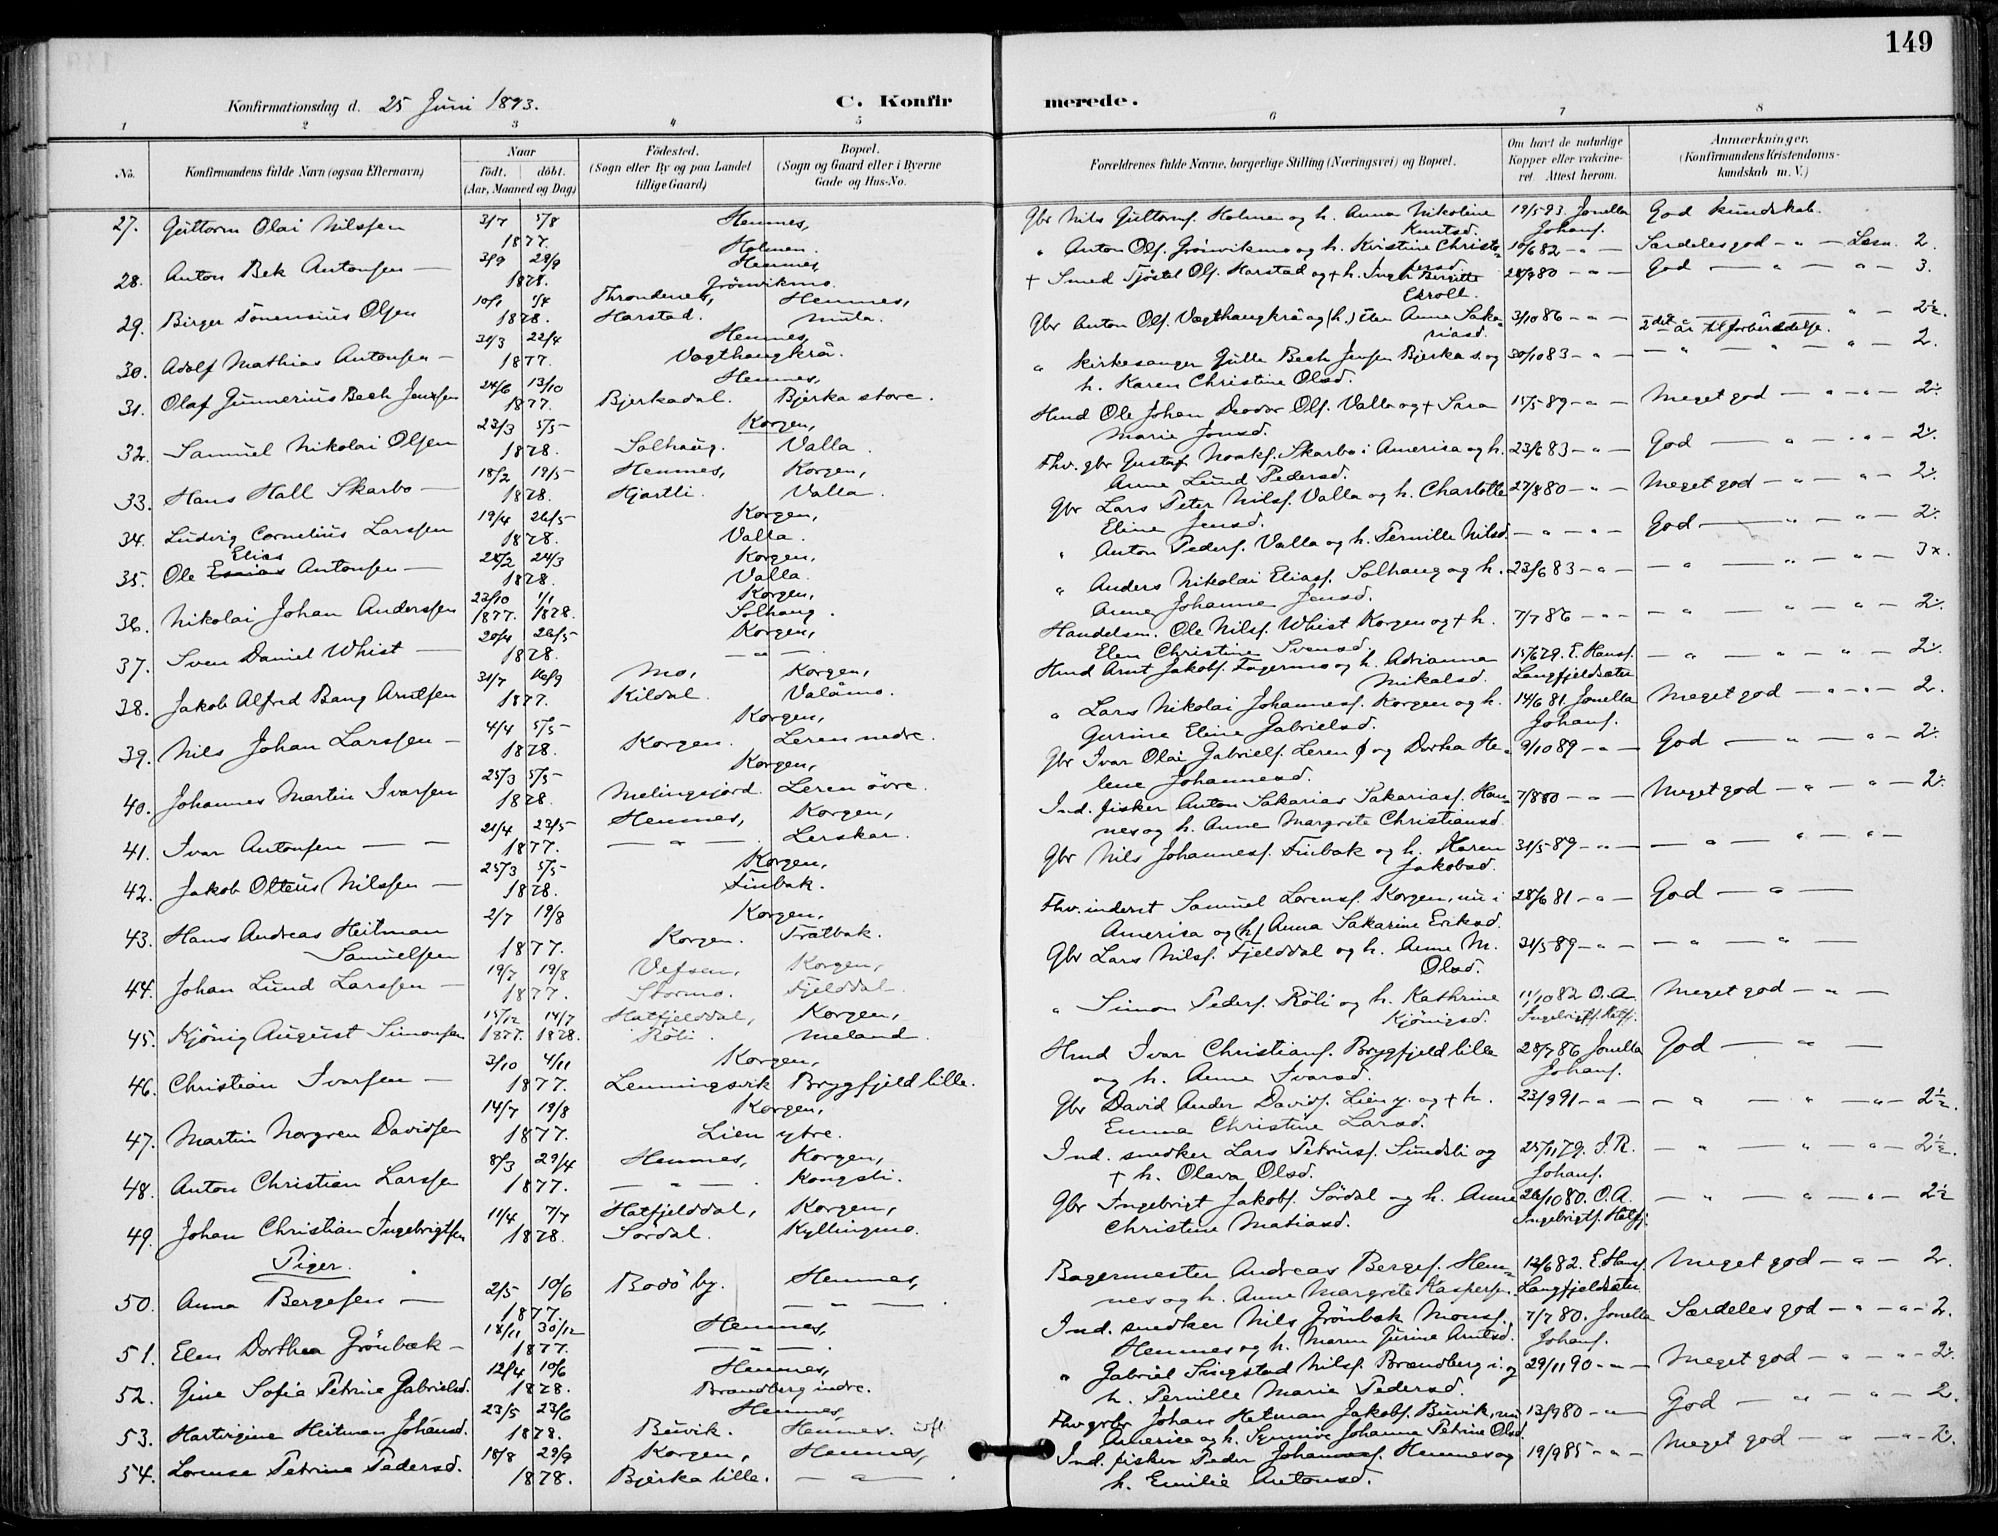 149
Konfirmationsdag d. 25 Juni 1893.
C. Konfirmerede.
1 2 3 4 5 6 7 8
No.
Konfirmandens fulde Navn (ogsaa Efternavn)
Naar
födt. döbt.
(Aar, Maaned og Dag)
Födested.
(Sogn eller By og paa Landet
tillige Gaard)
Bopæl.
(Sogn og Gaard eller i Byerne
Gade og Hus-No.
Forældrenes fulde Navne, borgerlige Stilling (Næringsvei) og Bopæl.
Om havt de naturlige
Kopper eller vakcine-
ret. Attest herom.
Anmærkninger.
(Konfirmandens Kristendoms-
kundskab m. V.)
27. Guttorm Olai Nilssen 3/7 5/8 1877. Hemnes, Holmen. Gbr Nils Guttormf. Holmen og h. Anna Nikoline Knutsd. 19/5 93. Jonella Johans. God kundskab.
28. Anton Bek Antonsen — 3/9 29/9 1878. Hemnes, Grönvikmo. " Anton Olf. Grönvikmo og h. Kristine Christensd. 10/6 82 - " - Særdeles god - " - Læsn. 2.
29. Birger Tönensius Olsen 10/1 1/4 1878. Throndenes, Harstad. Hemnes, Mula. + Smed Tjöstel Olf. Harstad og + h. Ingb. Birgitte Ekroll. 28/9 80 - " - God — " — " — 3.
30. Adolf Mathias Antonsen — 31/3 22/4 1877. Hemnes, Vagthaugkrå. Gbr Anton Olf. Vagthaugkrå og (h.) Elen Anna Sakariasd. 3/10 86 - " - 2det år til forberedelse. " — 2½.
31. Olaf Gunnerius Bech Jenssen 24/6 13/10 1877. Hemnes, Bjerkadal. Bjerka store. " Kirkesanger Gulle Bech Jensen Bjerka s. og h. Karen Christine Olsd. 30/10 83 - " - — " — " — " — 2.
32. Samuel Nikolai Olsen 23/3 5/5 1878. Korgen, Solhaug. Valla. Hmd Ole Johan Deodor Olf. Valla og + Sara Marie Jonsd. 15/5 89 - " - Meget god — " — " — 2.
33. Hans Hall Skarbo — 18/2 19/5 1878. Hemnes, Hjartli. Korgen, Valla. Fhv. gbr Gustaf Noakf. Skarbo i Amerika og h. Anne Lund Pedersd. 23/6 83 - " - God — " — " — 2.
34. Ludvig Cornelius Larssen 19/4 26/5 1878. Korgen, Valla. Gbr Lars Peter Nilsf. Valla og h. Charlotte Eline Jensd. 27/8 80 - " - Meget god — " — " — 2.
35. Ole Elias Antonsen — 24/2 24/3 1878. Korgen, Valla. " Anton Pedersf. Valla og h. Pernille Nilsd. — " — " — God — " — " — 2.
36. Nikolai Johan Anderssen 23/10 1877. 1/1 1878. Korgen, Solhaug. " Anders Nikolai Eliasf. Solhaug og h. Anne Johanne Jensd. 23/6 83 - " - — " — " — " — 3x.
37. Sven Daniel Whist — 20/4 26/5 1878. Korgen, — " — Handelsm. Ole Nilsf. Whist Korgen og + h. Elen Christine Svensd. 7/7 86 - " - — " — " — " — 2.
38. Jakob Alfred Bang Arntsen 31/7 16/9 1877. Mo, Kildal. Korgen, Valåmo. Hmd Arnt Jakobf. Fagermo og h. Adrianna Mikalsd. 15/6 79. E. Hansf. Langfjeldsæter — " — " — " — 2.
39. Nils Johan Larssen — 4/4 5/5 1878. Korgen, Korgen. Leren nedre. " Lars Nikolai Johannesf. Korgen og h. Gurine Eline Gabrielsd. 14/6 81. Jonella Johanf. Meget god — " — " — 2.
40. Johannes Martin Ivarsen 25/3 5/5 1878. Korgen, Melingsjord. Leren övre. Gbr Ivar Olai Gabrielf. Leren ö og Dorthea Helene Johannesd. 9/10 89 - " - God — " — " — 2.
41. Ivar Antonsen — — 21/4 23/5 1877. Hemnes, — " — Korgen, Lerskar. Ind. fisker Anton Sakarias Sakariasf. Hemnes og h. Anne Margrete Christiansd. 7/8 80 - " - Meget god — " — " — 2.
42. Jakob Olteus Nilssen — 25/3 5/5 1878. Korgen, Finbak. Gbr Nils Johannesf. Finbak og h. Karen Jakobsd. 31/5 89 - " - — " — " — " —
43. Hans Andreas Heitman Samuelsen 2/7 19/8 1877. Korgen, Korgen. Tratbak. Fhv. inderst Samuel Lorensf. Korgen, nu i Amerika og (h) Anna Sakarine Eriksd. 28/6 81 - " - God — " —
44. Johan Lund Larssen — 19/7 19/8 1877. Vefsen, Stormo. Korgen, Fjelddal. Gbr Lars Nilsf. Fjelddal og h. Anne M. Olsd. 31/5 89 - " - — " — " —
45. Kjönig August Simonsen 15/12 1877. 14/7 1878. Hatfjelddal, Röli. Korgen, Meland. " Simon Pedersf. Röli og h. Kathrine Kjönigsd. 11/10 82 O. A. Ingebrigtf. Hatfj. Meget god — " —
46. Christian Ivarsen — 3/10 4/11 1877. Korgen, Lenningsvik Brygfjeld lille. Hmd Ivar Christianf. Brygfjeld lille og h. Anne Ivarsd. 28/7 86 Jonella Johanf. God — " —
47. Martin Norgren Davidsen 14/7 19/8 1877. Korgen, Lien ytre. Gbr David Ander Davidf. Lien y. og + h. Emma Christine Larsd. 23/9 91 - " - — " — " — " — 2½.
48. Anton Christian Larssen 8/3 29/4 1877. Hemnes, — " — Korgen, Kongsli. Ind. snedker Lars Petrusf. Sundsli og + h. Olava Olsd. 25/11 79. J. R. Johanf. — " — " — " — 2½.
49. Johan Christian Ingebrigtsen 11/4 7/7 1878. Hatfjelddal, Sördal. Korgen, Kyllingmo. Gbr Ingebrigt Jakobf. Sördal og h. Anne Christine Matiasd. 26/10 80. O. A. Ingebrigtf. Hatfj. — " — " — " — 2½
Piger.
50. Anna Bergesen — 2/5 10/6 1877. Bodö by. Hemnes, — " — Bagermester Andreas Bergef. Hemnes og h. Anne Margrete Kaspersen. 12/6 82. E. Hansf. Langfjeldsæter Meget god — " — 2.
51. Elen Dorthea Grönbæk — 18/11 30/12 1877. Hemnes, — " — Ind. snedker Nils Grönbæk Monsf. Hemnes og h. Maren Jurine Arntsd. 7/7 80. Jonella Johanf. Særdeles god — " — " — 2.
52. Gine Sofie Petrine Gabrielsd. 12/4 10/6 1878. Hemnes, Brandberg indre. " Gabriel Singstad Nilsf. Brandberg i. og h. Pernille Marie Pedersd. 29/11 90 - " - Meget god — " — " — 2.
53. Hartvigine Heitman Johansd. 23/5 23/6 1878. Hemnes, Buvik. Hemnes. Fhv. gbr Johan Hetman Jakobf. Buvik, nu Amerika og h. Synnöve Johanna Petrine Olsd. 13/9 80 - " - God — " — " — 2.
54. Lorense Petrine Pedersd. 18/8 29/9 1878. Korgen, Bjerka lille. Hemnes, — " — Ind. fisker Peder Johannesf. Hemnes og h. Emilie Antonsd. 19/9 85 - " - Meget god — " — " — 2.